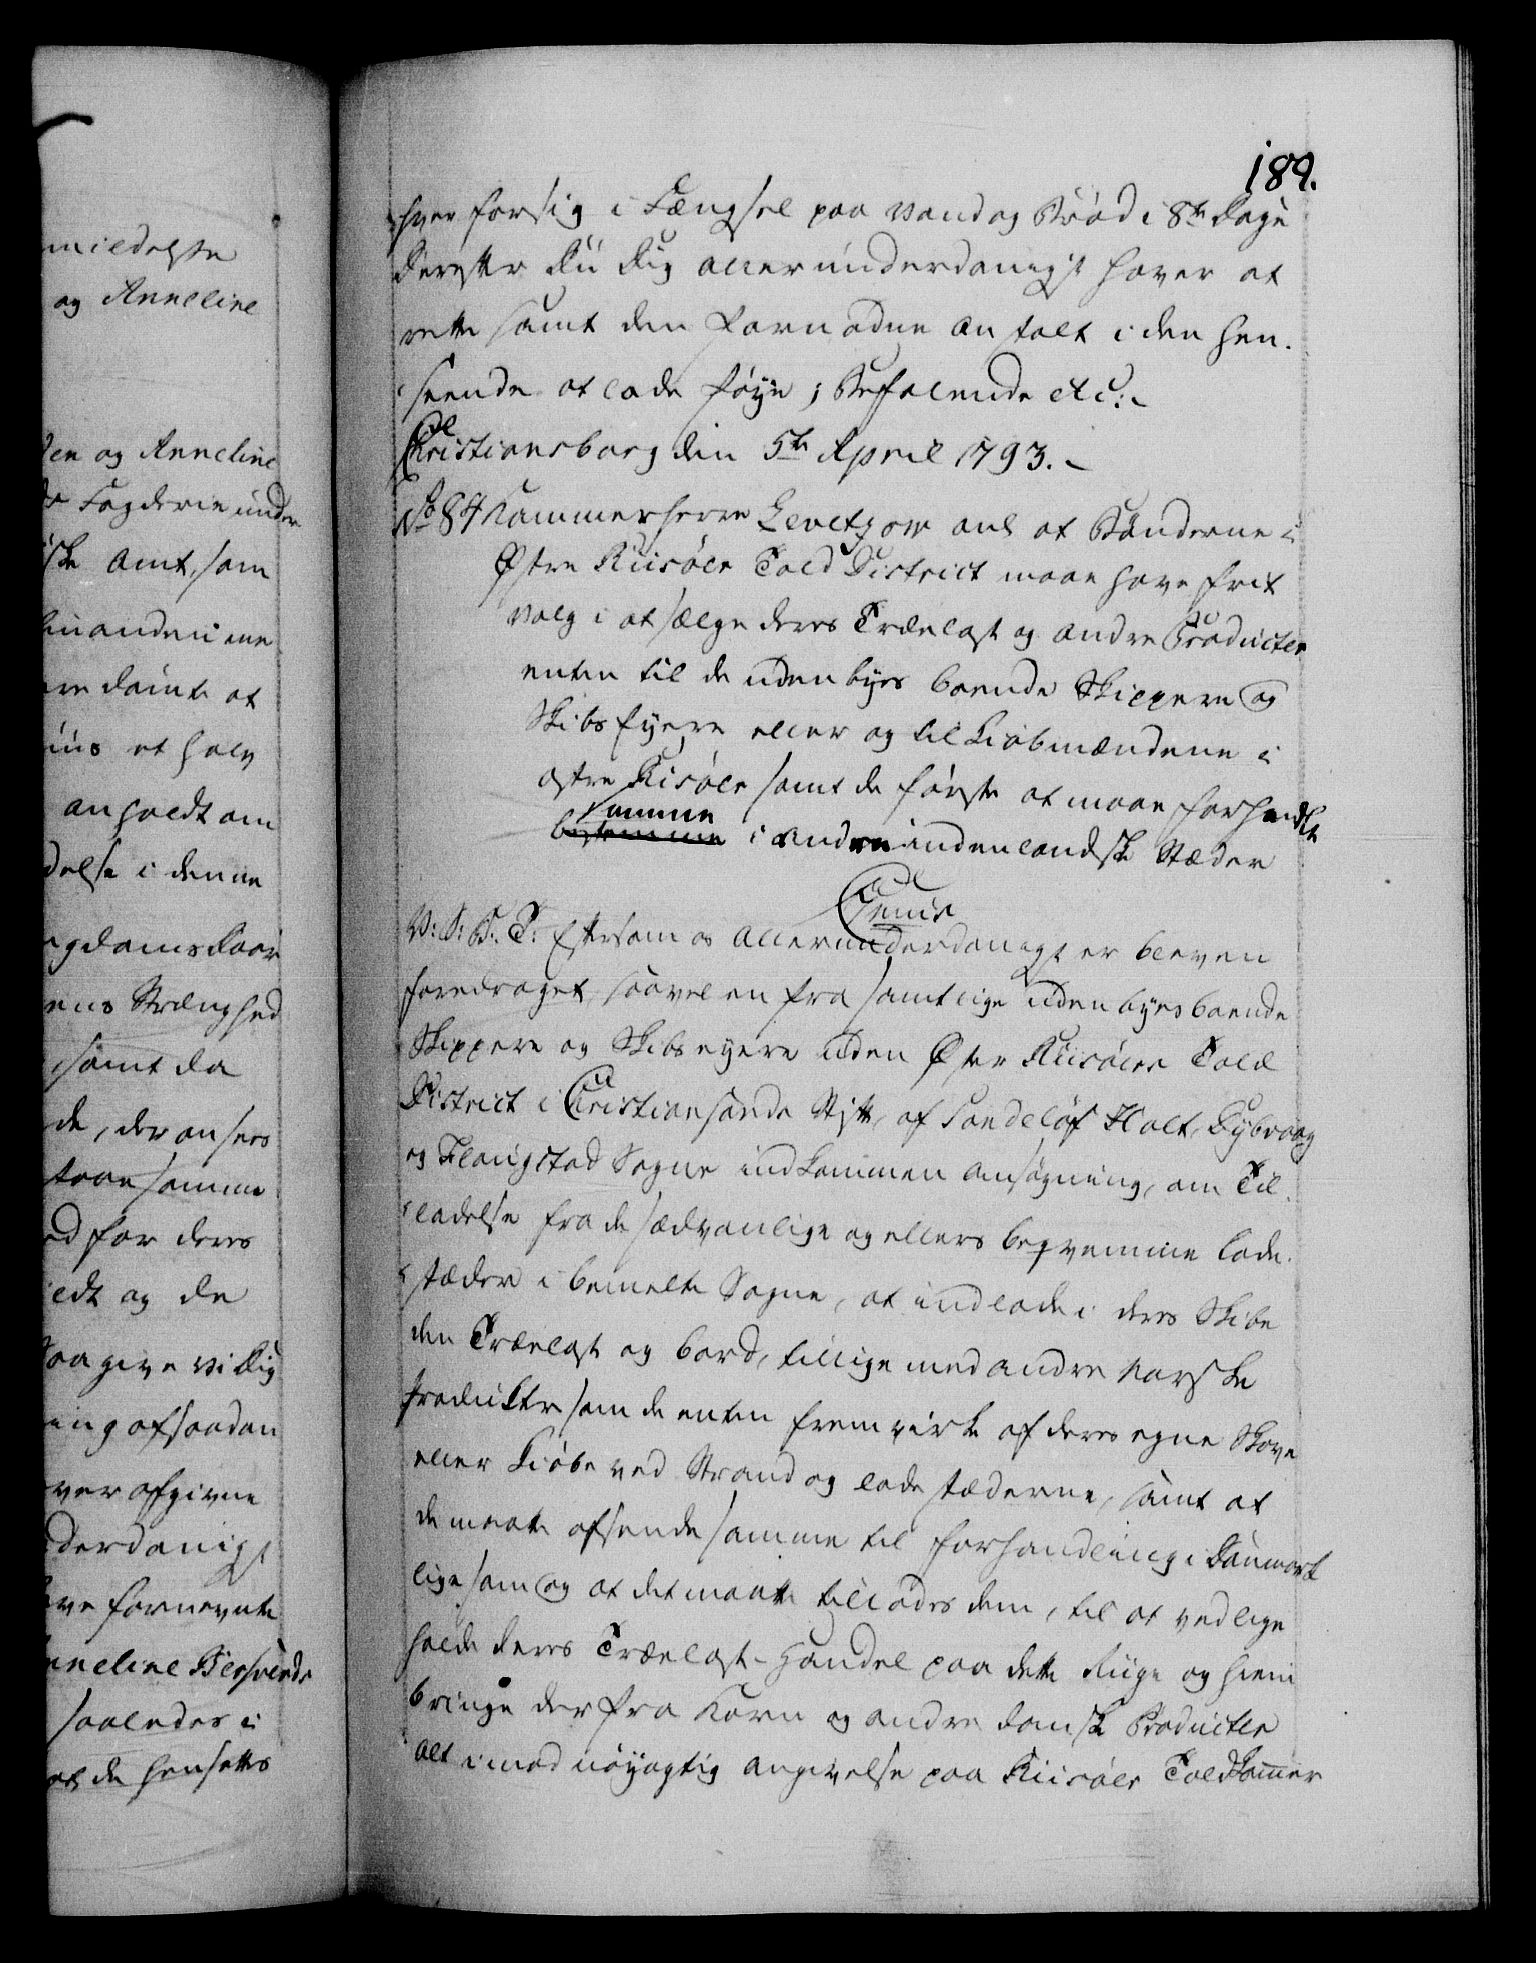 189.
hver forsig i Fængsel paa Vand og Brød i 8te Dage
Derefter Du Dig allerunderdanigst haver at
rette samt den fornødne Anstalt i den hen-
seende at lade føye; Befalende etc:
Christiansborg den 5te April 1793.
No 84 Kammerherre Levetzow anl at Bønderne i
Østre Riisøer Told District maae have frit
valg i at sælge deres Trælast og andre Producter
enten til de uden byes boende Skippere og
Skibs Eyere eller og til Kiøbmændene i
østre Riisøer samt de første at maae forhandle
samme
bestemme i andre indenlandske Stæder
Genie
V: S: B: T: Eftersom os Allerunderdanigst er bleven
foredraget, saavel en fra samtlige uden byes boende
Skippere og Skibs eyere uden Øster Riisøer Told
District i Christiansands Stift, af Sandeløf Holt, Dybvaag
og Flangstad Sogne indkommen Ansøgning, om Til-
ladelse fra de sædvanlige og ellers beqvemme lade-
stæder i bemelte Sogne, at indlade i deres Skibe
den Trælast og bord, tillige med andre Norske
Produkter som de enten fremvirke af deres egne Skove
eller Kiøbe ved Strand og ladestæderne, samt at
de maatte afsende samme til forhandling i Danmark
ligesom og at det maatte tillades dem, til at vedlige
holde deres Trælast-Handel paa dette Riige og hiem
bringe der fra Korn og andre danske Producter
alt imod nøyagtig angivelse paa Riisøer Toldkammer
mildelse
og Anneline
den og Anneline
Fogderie under
ske Amt, som
hinanden i me
dømte at
et halv
anholdt om
delse i denne
ngdoms Aar
ens Strænghed
samt da
de, der ansees
samme
ed for deres
og de
Saa give Vi Dig
ing af saadan
ver afgivne
derdanigst
ve fornevnte
nneline
saaledes i
at de hensættes